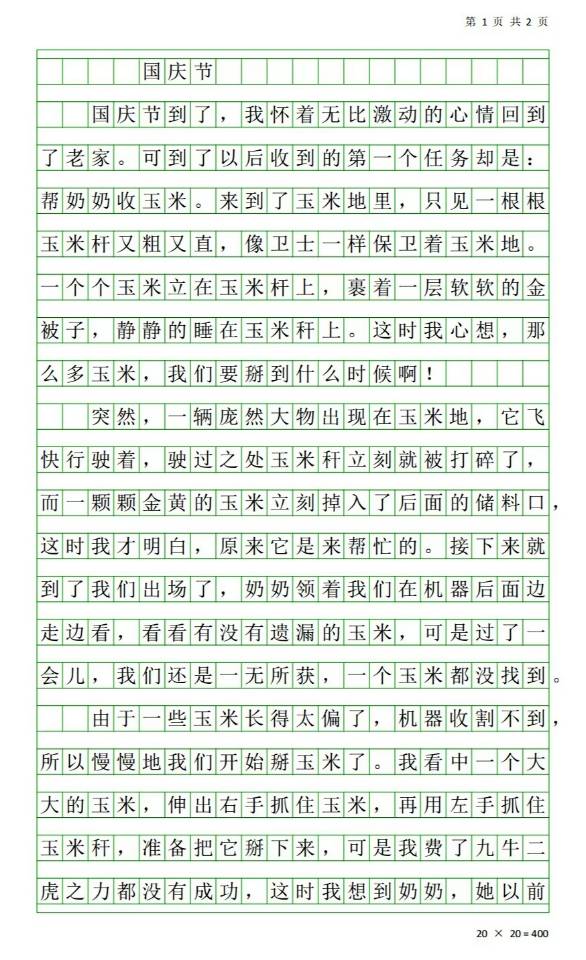 第 1 页 共 2 页
国庆节
国庆节到了，我怀着无比激动的心情回到
了老家。可到了以后收到的第一个任务却是：
帮奶奶收玉米。来到了玉米地里，只见一根根
玉米杆又粗又直，像卫士一样保卫着玉米地。
一个个玉米立在玉米杆上，裹着一层软软的金
被子，静静的睡在玉米秆上。这时我心想，那
么多玉米，我们要掰到什么时候啊！
突然，一辆庞然大物出现在玉米地，它飞
快行驶着，驶过之处玉米秆立刻就被打碎了，
而一颗颗金黄的玉米立刻掉入了后面的储料口，
这时我才明白，原来它是来帮忙的。接下来就
到了我们出场了，奶奶领着我们在机器后面边
走边看，看看有没有遗漏的玉米，可是过了一
会儿，我们还是一无所获，一个玉米都没找到。
由于一些玉米长得太偏了，机器收割不到，
所以慢慢地我们开始掰玉米了。我看中一个大
大的玉米，伸出右手抓住玉米，再用左手抓住
玉米秆，准备把它掰下来，可是我费了九牛二
虎之力都没有成功，这时我想到奶奶，她以前
20 × 20 = 400